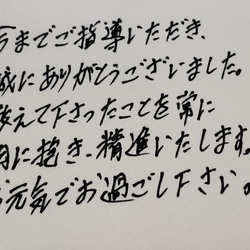 今までご指導いただき、
誠にありがとうございました。
教えて下さったことを常に
胸に抱き、精進いたします。
お元気でお過ごし下さい